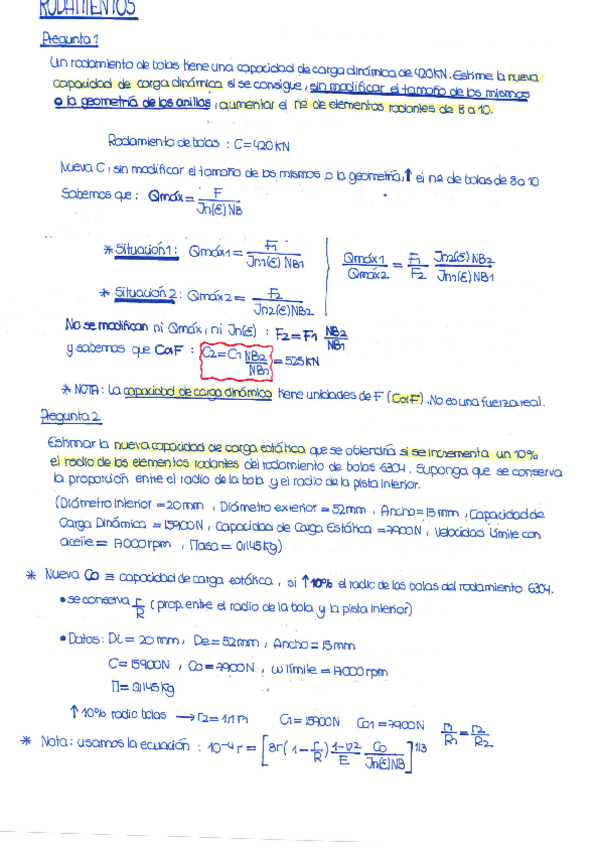 RODAMIENTOS
Pregunta 1
Un rodamiento de bolas tiene una capacidad de carga dinámica de 420KN. Estime la nueva
capacidad de carga dinámica si se consigue, sin modificar el tamaño de los mismos
o la geometría de los anillos, aumentar el nº de elementos rodantes de 8 a 10.
Rodamiento de bolas : C=420KN
Nueva C, sin modificar el tamaño de los mismos o la geometría, ↑ el nº de bolas de 8 a 10
Sabemos que : Qmáx = F / Jn(ε) NB
* Situación 1 : Qmáx1 = F1 / Jn1(ε) NB1
Qmáx1 / Qmáx2 = F1 / F2 Jn2(ε) NB2 / Jn1(ε) NB1
* Situación 2 : Qmáx2 = F2 / Jn2(ε) NB2
No se modifican ni Qmáx, ni Jn(ε) : F2 = F1 NB2 / NB1
y sabemos que CαF : C2 = C1 NB2 / NB1 = 525KN
* NOTA: La capacidad de carga dinámica tiene unidades de F (CαF). No es una fuerza real.
Pregunta 2
Estimar la nueva capacidad de carga estática que se obtendría si se incrementa un 10%
el radio de los elementos rodantes del rodamiento de bolas 6304. Suponga que se conserva
la proporción entre el radio de la bola y el radio de la pista interior.
(Diámetro interior = 20mm, Diámetro exterior = 52mm, Ancho = 15mm, Capacidad de
Carga Dinámica = 15900N, Capacidad de Carga Estática = 7900N, Velocidad Límite con
aceite = 17000rpm, Masa = 0,145Kg)
* Nueva Co ≡ capacidad de carga estática, si ↑10% el radio de las bolas del rodamiento 6304.
• se conserva r/R (prop. entre el radio de la bola y la pista interior)
• Datos: Di = 20mm, De = 52mm, Ancho = 15mm
C = 15900N, Co = 7900N, ω límite = 17000rpm
M = 0,145Kg
↑10% radio bolas → r2 = 1,1 r1 C1 = 15900N Co1 = 7900N r1/R1 = r2/R2
* Nota: usamos la ecuación : 10⁻⁴ r = [3r(1 - r/R) 1-ν2 / E Co / Jn(ε) NB]^1/3